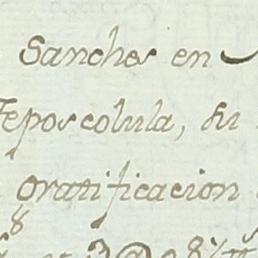 Sanches en
Teposcolula, su
gratificacion